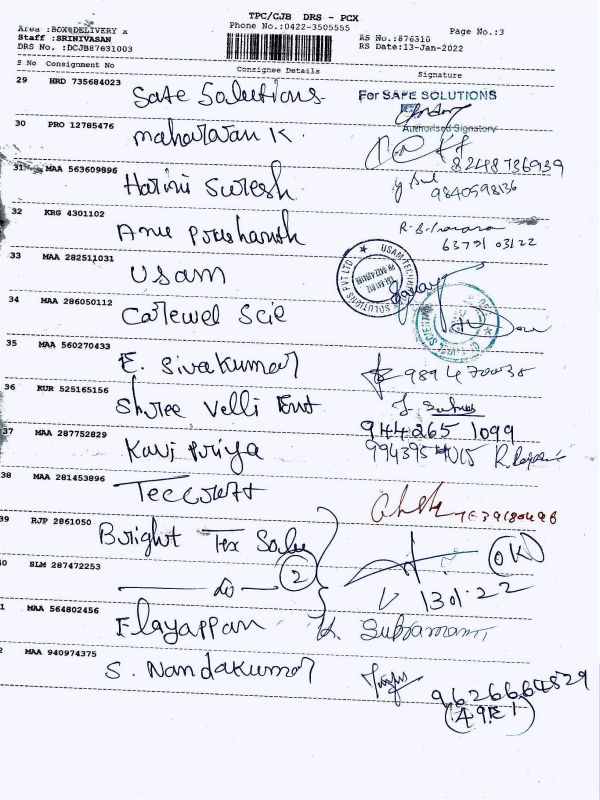 TPC/CJB DRS - PCX
Phone No.:0422-3505555
Page No.:3
Area :BOX DELIVERY x
Staff :SRINIVASAN
DRS No. :DCJB87631003
RS No.:876310
RS Date:13-Jan-2022
S No Consignment No Consignee Details Signature
29 HRD 735684023 Safe Solutions For SAFE SOLUTIONS
Authorised Signatory
30 PRO 12785476 maharajan K.
8248736939
31 MAA 563609896 Harini Suresh
9840598136
32 KRG 4301102 Anu Prashanth
63791 03122
33 MAA 282511031 USAM
34 MAA 286050112 Carewel Scie
35 MAA 560270433 E. Sivakumar
9894470038
36 KUR 525165156 Shree Velli Ent
944265 1099
37 MAA 287752829 Kavi Priya
38 MAA 281453896 Teccraft
39 RJP 2861050 Bright Tex Sales
OK
40 SLM 287472253 do 2
13.01.22
1 MAA 564802456 Elayappan K. Subramani
2 MAA 940974375 S. Nandakumar
9626664829